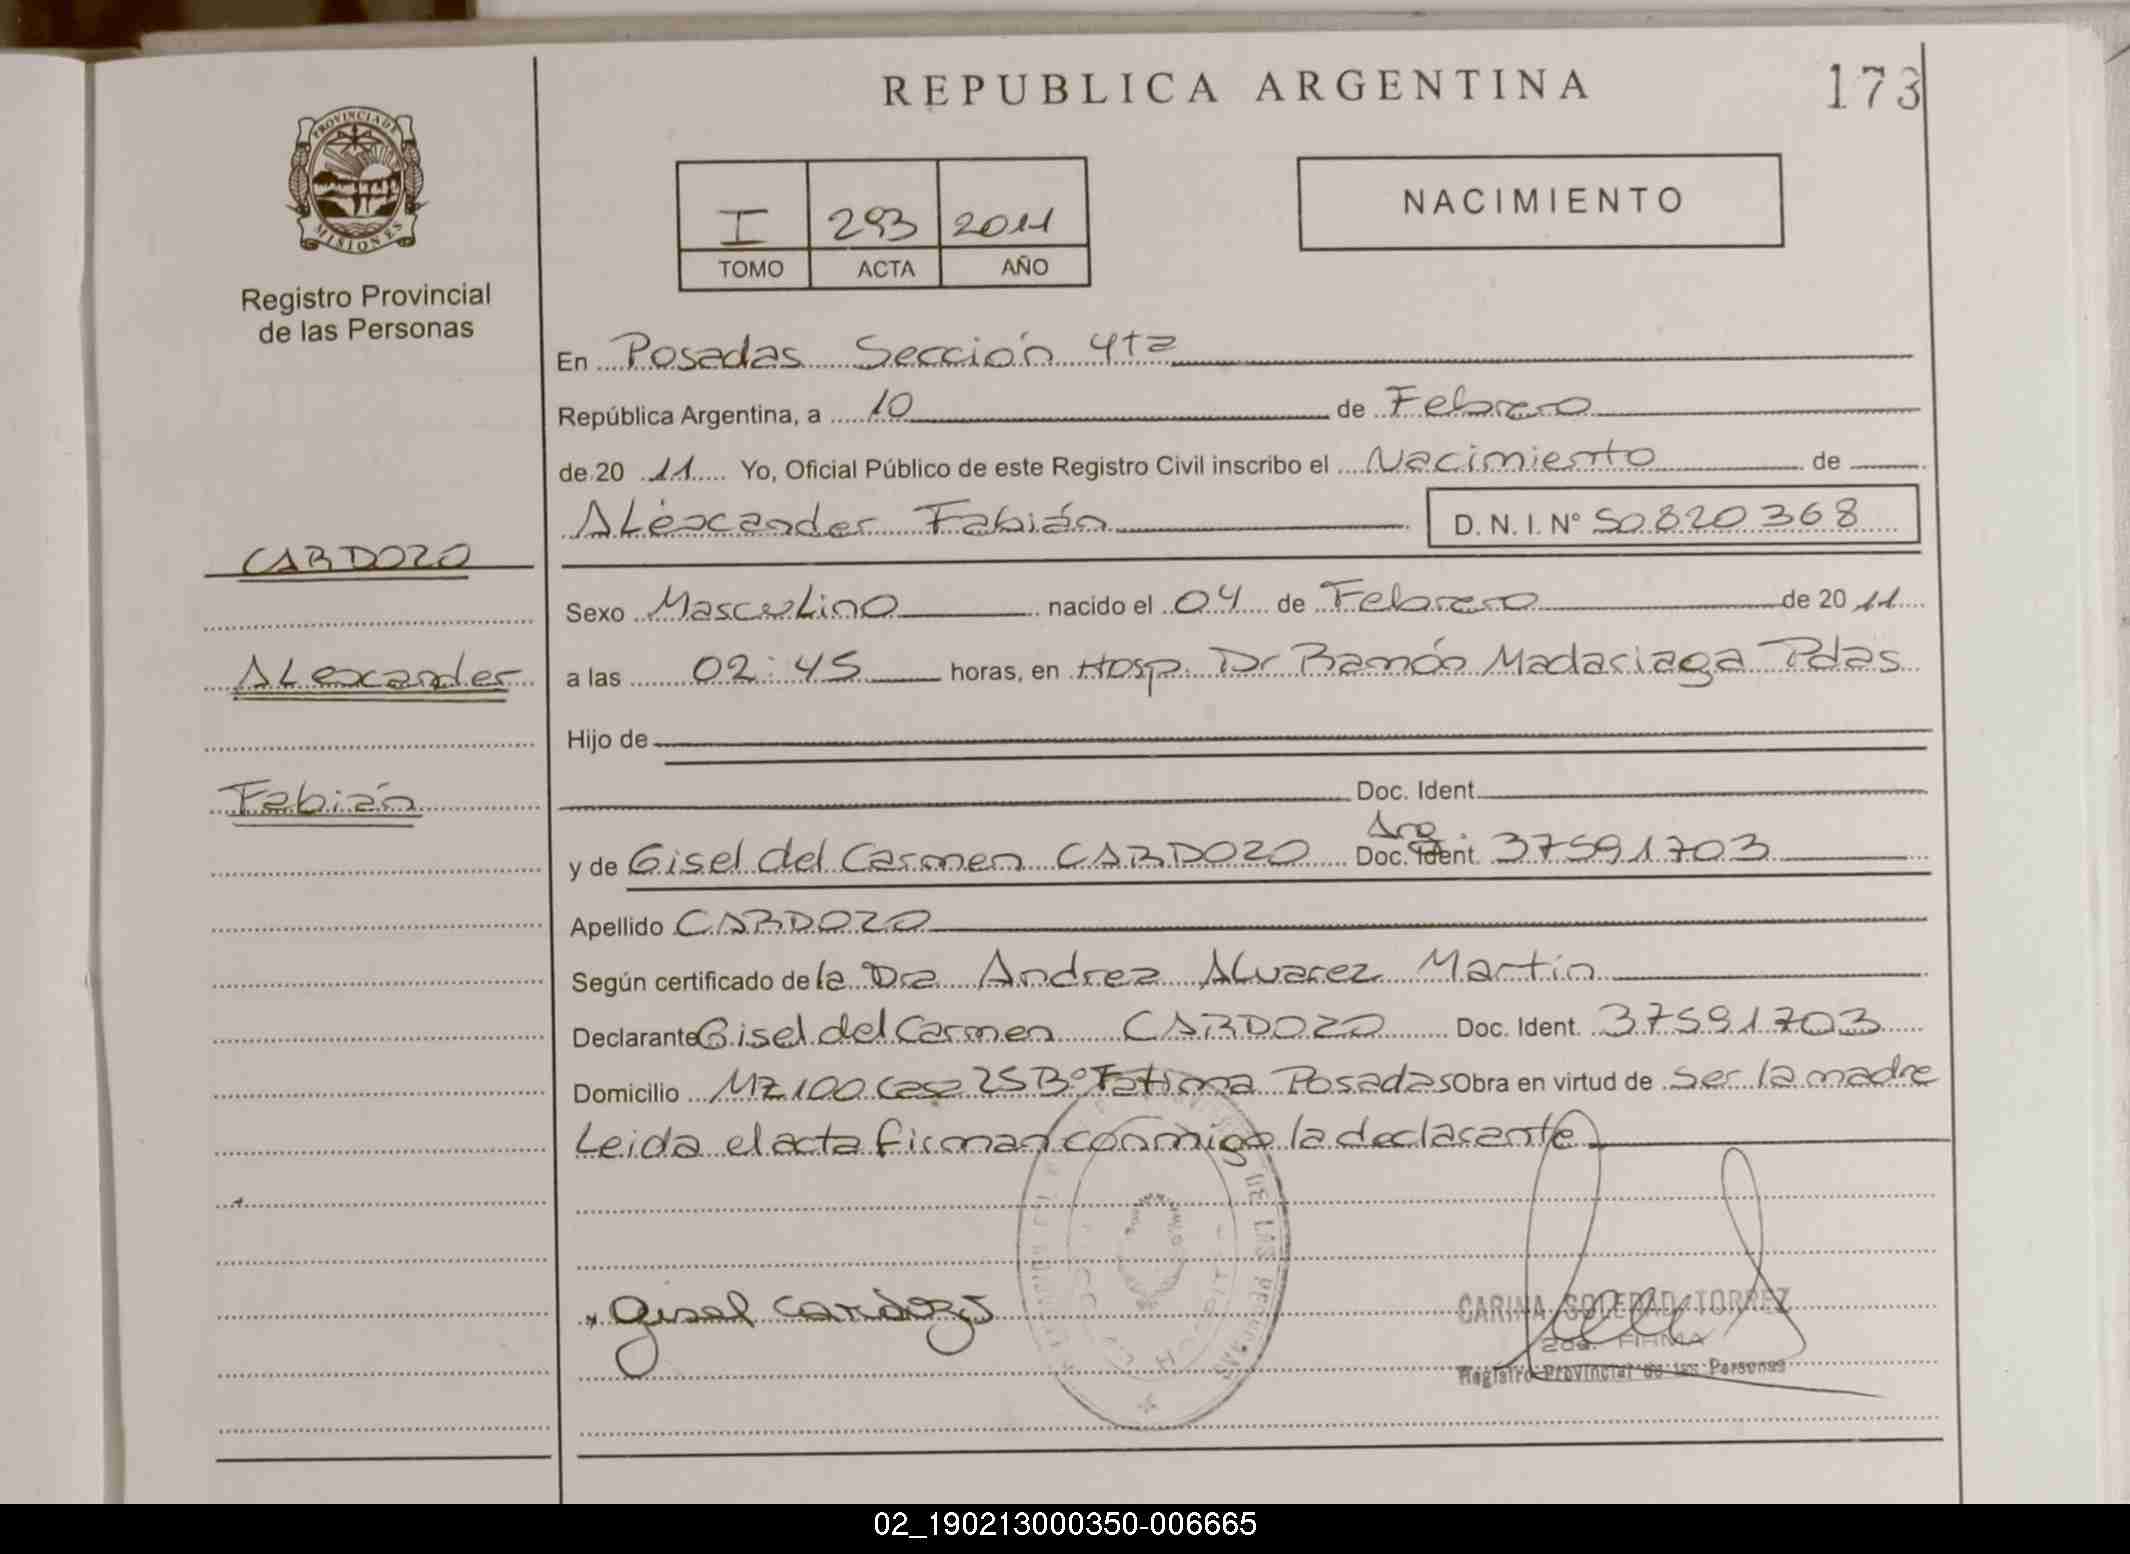 REPUBLICA ARGENTINA
173
PROVINCIA DE
MISIONES
Registro Provincial
de las Personas
I 293 2011
TOMO ACTA AÑO
NACIMIENTO
En Posadas Sección 4ta
República Argentina, a 10 de Febrero
de 20 11 Yo, Oficial Público de este Registro Civil inscribo el Nacimiento de
Alexander Fabián D. N. I. N° 50820368
CARDOZO
Alexander
Fabián
Sexo Masculino nacido el 04 de Febrero de 20 11
a las 02:45 horas, en Hosp. Dr Ramón Madariaga Pdas
Hijo de
Doc. Ident.
Arg
y de Gisel del Carmen CARDOZO Doc. Ident. 37591703
Apellido CARDOZO
Según certificado de la Dra Andrea Alvarez Martin
Declarante Gisel del Carmen CARDOZO Doc. Ident. 37591703
Domicilio Mz 100 Casa 25 B° Fatima Posadas Obra en virtud de ser la madre
Leida el acta firman conmigo la declarante
DE LAS PERSONAS
Gisel Cardozo
CARINA SOLEDAD TORREZ
2da. FIRMA
Registro Provincial de las Personas
02_190213000350-006665